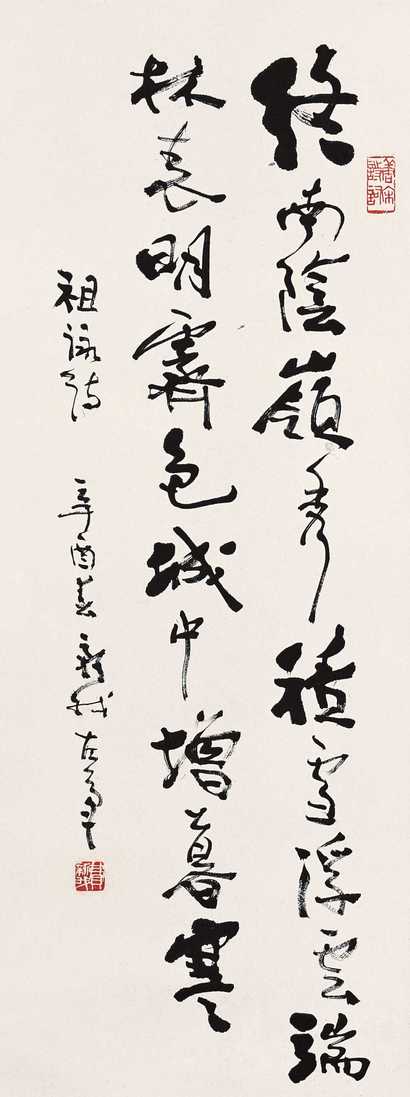 終南陰嶺秀積雪浮雲端
林表明霽色城中增暮寒
祖詠詩 辛酉春 新我左筆